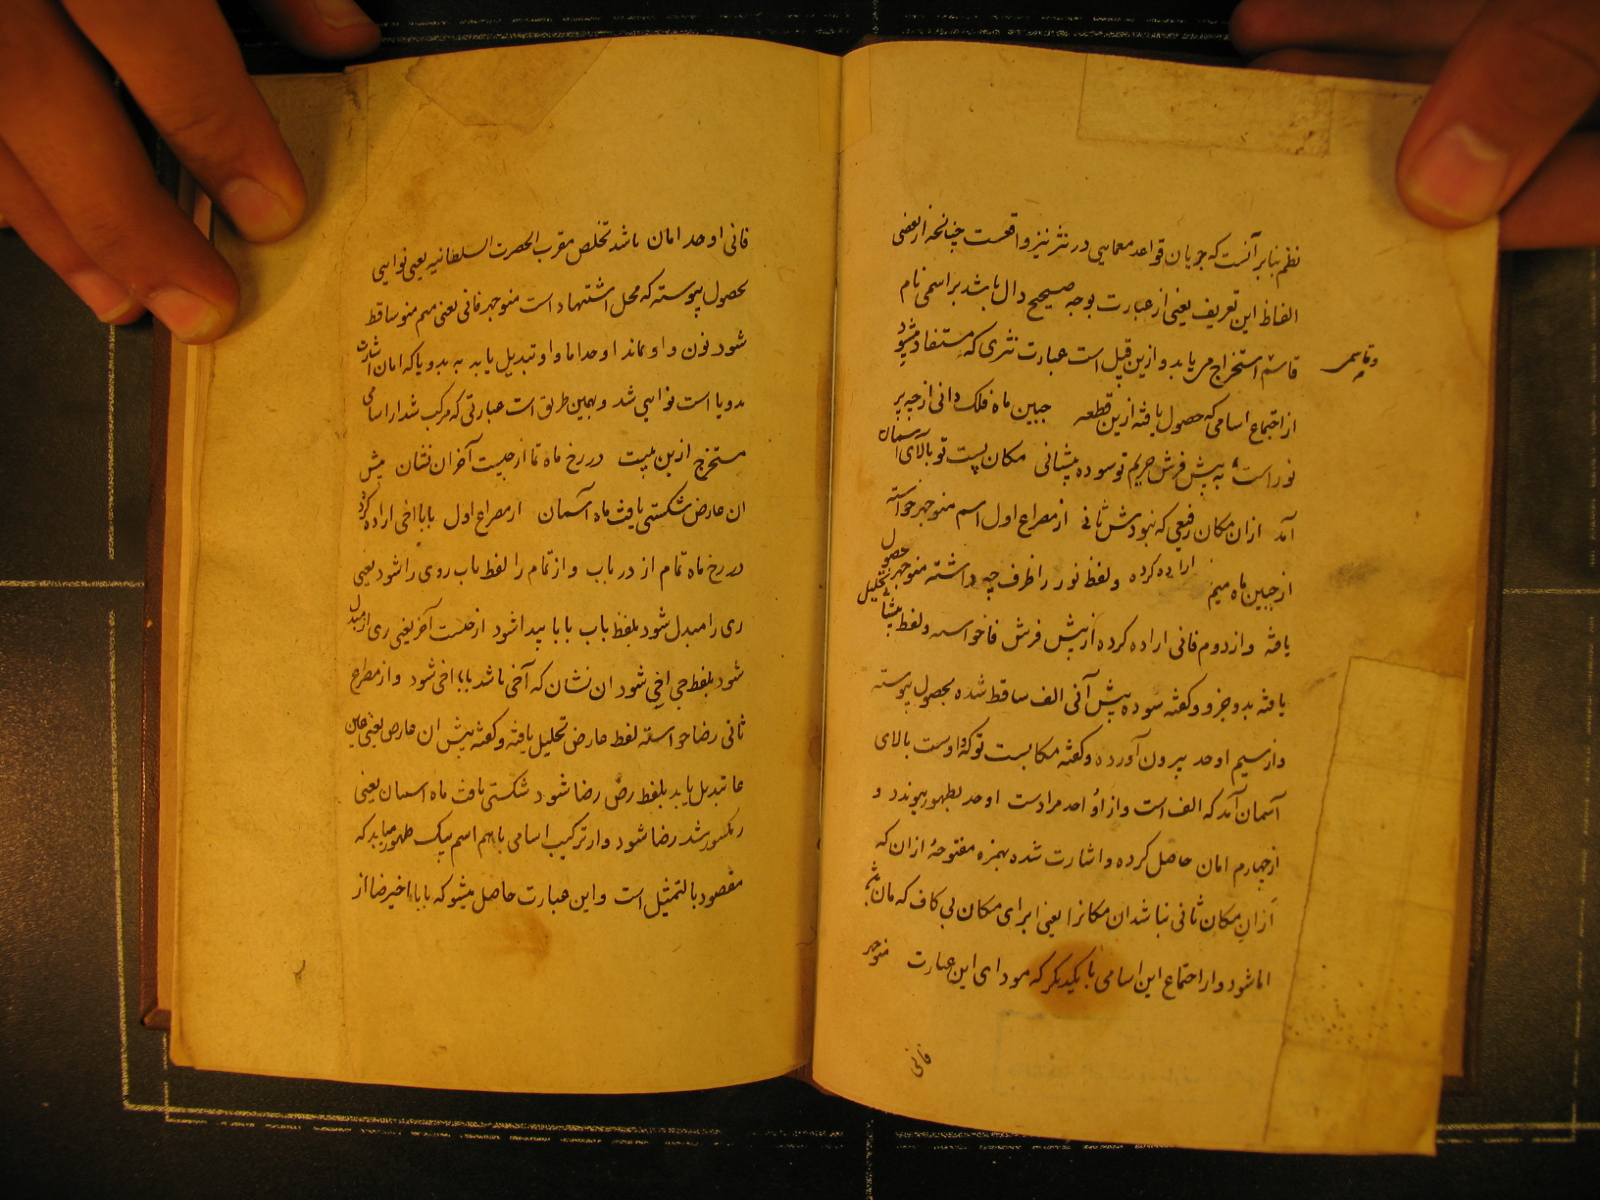 نظم بنابر آنست که جریان قواعد معمایی در نثر نیز واقعست چنانچه از بعضی
الفاظ این تعریف یعنی از عبارت بوجه صحیح دال باشد بر اسمی نام
قاسم استخراج می یابد و ازین قبیل است عبارت نثری که مستفاد میشود
از اجتماع اسامی که حصول یافته ازین قطعه جبین ماه فلک دانی از چه پر
نور است به پیش فرش حریم تو سوده پیشانی مکان پست تو بالای آسمان
آمد ازان مکان رفیعی که نبودش ثانی از مصراع اول اسم منوجهر خواسته
از جبین ماه میم اراده کرده ولفظ نور را ظرف چه داشته منوجهر حصول
یافته و از دوم فانی اراده کرده از پیش فرش فا خواسته ولفظ پیشانی تحلیل
یافته بدو جزو و گفته سوده پیش آنی الف ساقط شده بحصول پیوسته
و از سیم اوحد بیرون آورده و گفته مکان پست تو که او است بالای
آسمان آمد که الف است و از او احد مراد است اوحد بظهور پیوندد و
از چهارم امان حاصل کرده و اشارت شده بهمزه مفتوحه ازان که
ازان مکان ثانی نباشد ان مکانرا یعنی ابرای مکان بی کاف که مان باشد
اما شود و از اجتماع این اسامی با یکدیگر که مودای این عبارت منوجهر
فانی
فانی اوحد امان باشد تخلص مقرب الحضرت السلطانیه یعنی نوایی
بحصول پیوسته که محل استشهاد است منوجهر فانی یعنی میم منو ساقط
شود نون و او ماند اوحد اما و او تبدیل یابد به بدو یا که امان اشارت
بدو یا است نوایی شد و بهمین طریق است عبارتی که مرکب شد از اسامی
مستخرج ازین بیت در رخ ماه تما از جلیست آخر ان نشان پیش
ان عارض شکستی یافت ماه آسمان از مصراع اول بابا اخی اراده کرد
در رخ ماه تمام از در باب و از تمام را لفظ باب روی را شود یعنی
ری را مبدل شود بلفظ باب بابا پیدا شود از جلیست آخر یعنی ری از مبدل
شود بلفظ جی اخی شود ان نشان که آخی باشد بابا اخی شود و از مصراع
ثانی رضا خواسته لفظ عارض تحلیل یافته و گفته پیش ان عارض یعنی عین
عا تبدیل یابد بلفظ رض رضا شود شکستی یافت ماه آسمان یعنی
ر مکسور شد رضا شود و از ترکیب اسامی باهم اسم بیک ظهور میابد که
مقصود بالتمثیل است و این عبارت حاصل میشود که بابا اخی رضا از